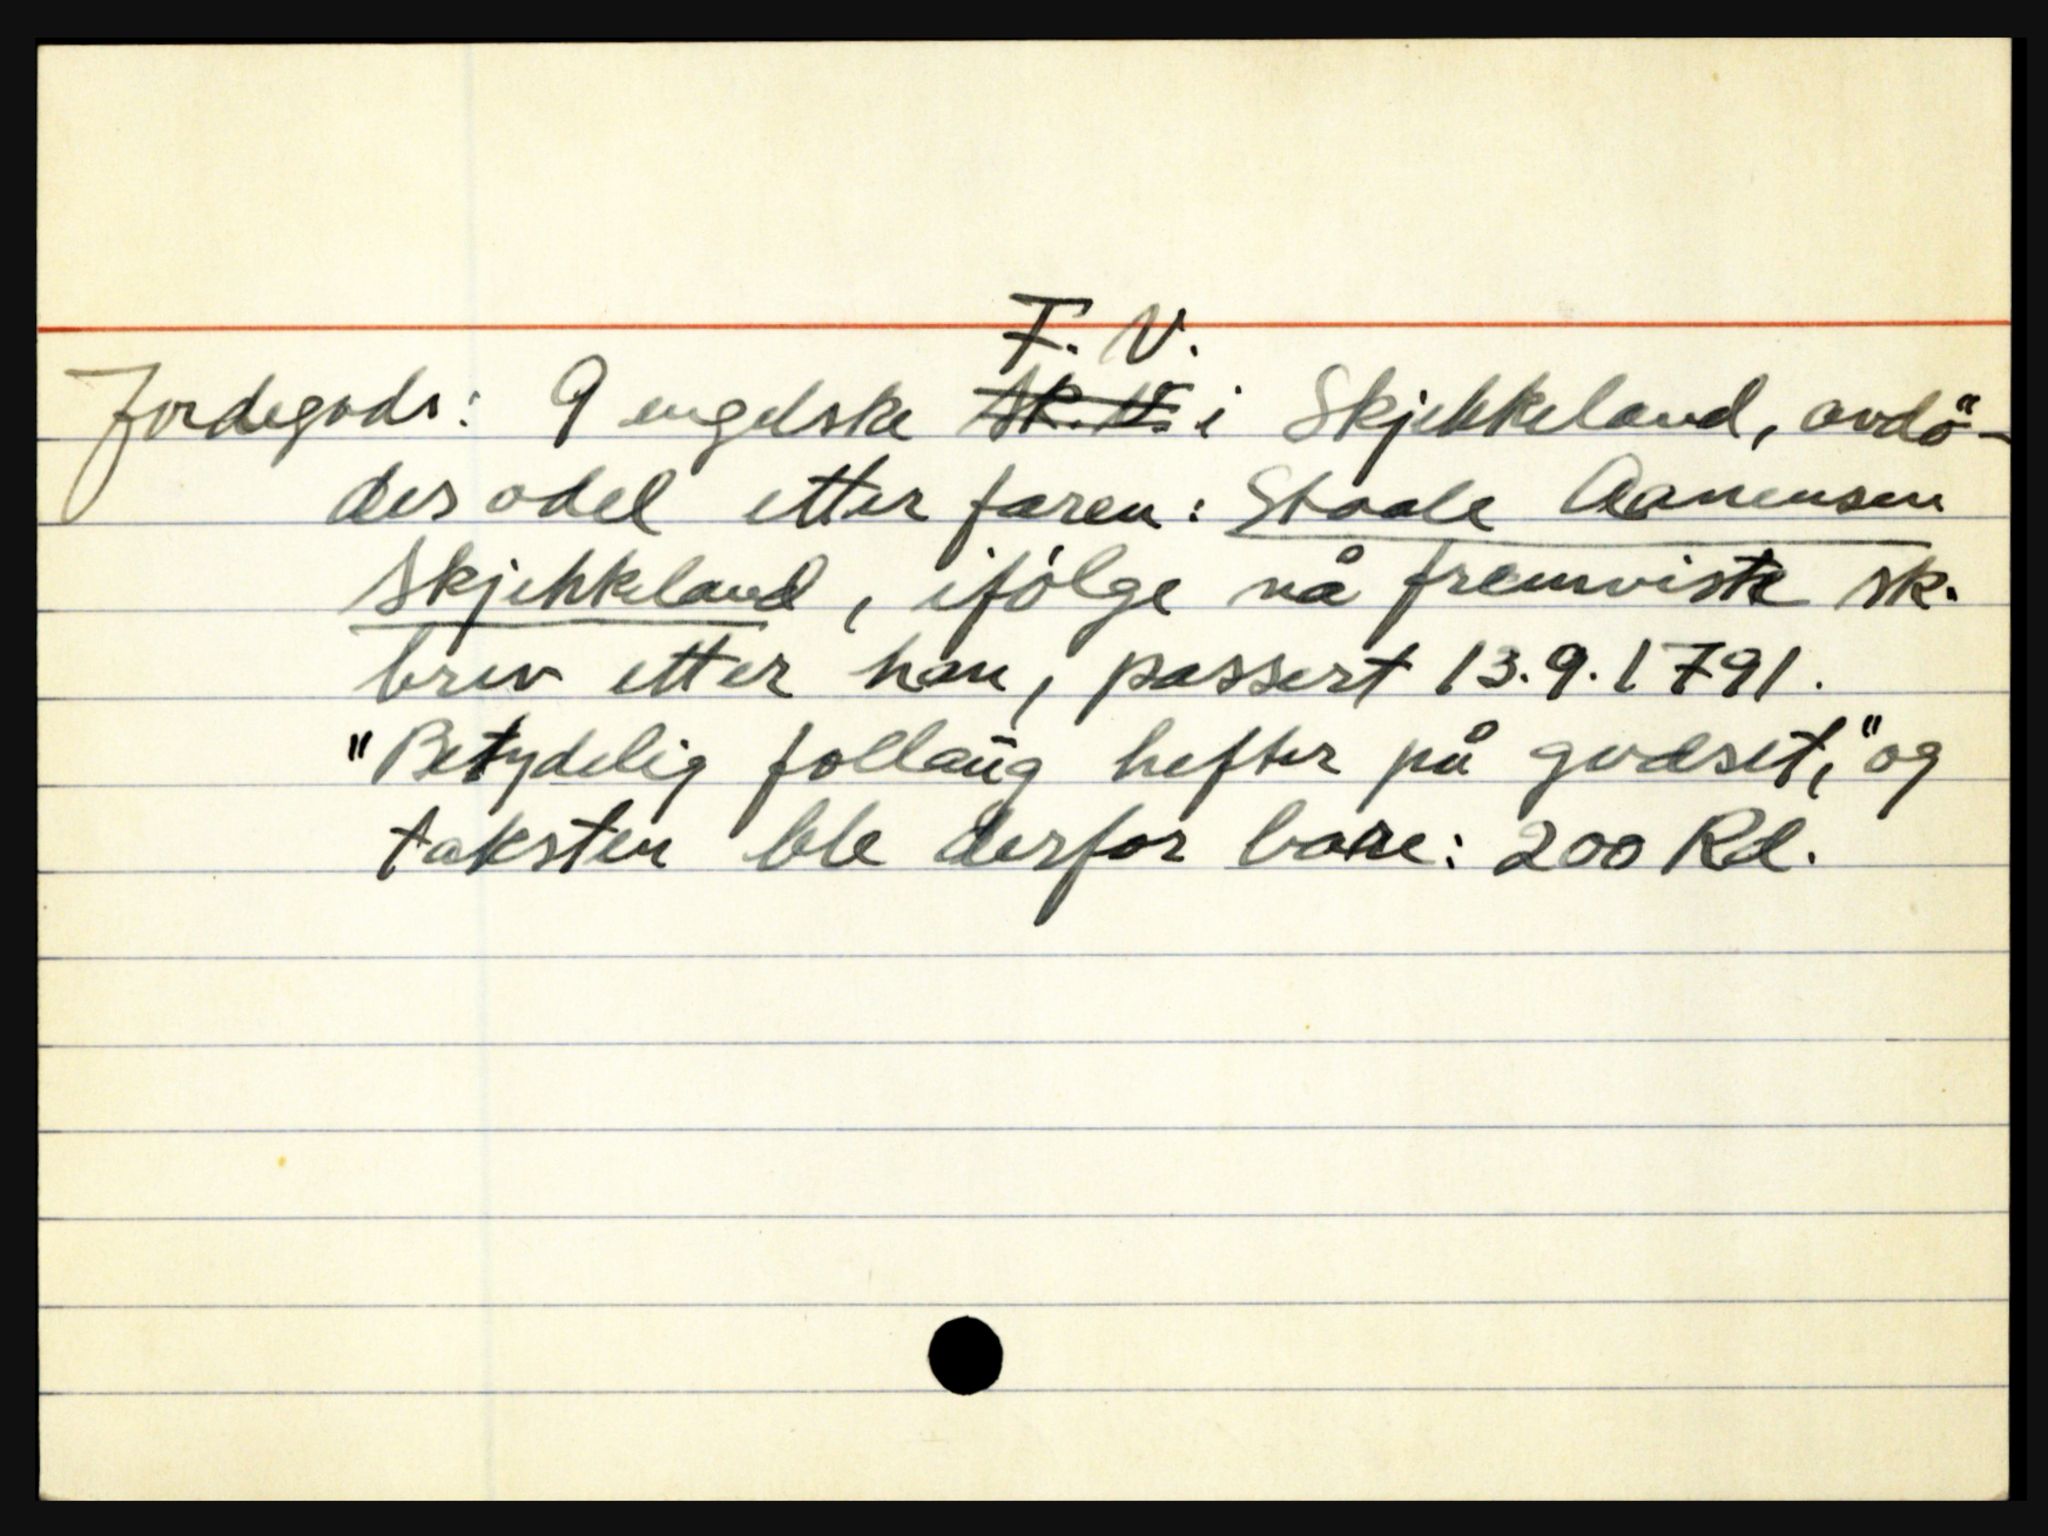 T. V.
Jordegods: 9 engelske Sk. V. i Skjekkeland, avdö-
des odel etter faren: Staale Aanensen
Skjekkeland, ifölge nå fremviste sk.
brev etter han, passert 13.9.1791.
"Betydelig follaug hefter på godset," og
taksten ble derfor bare: 200 Rd.